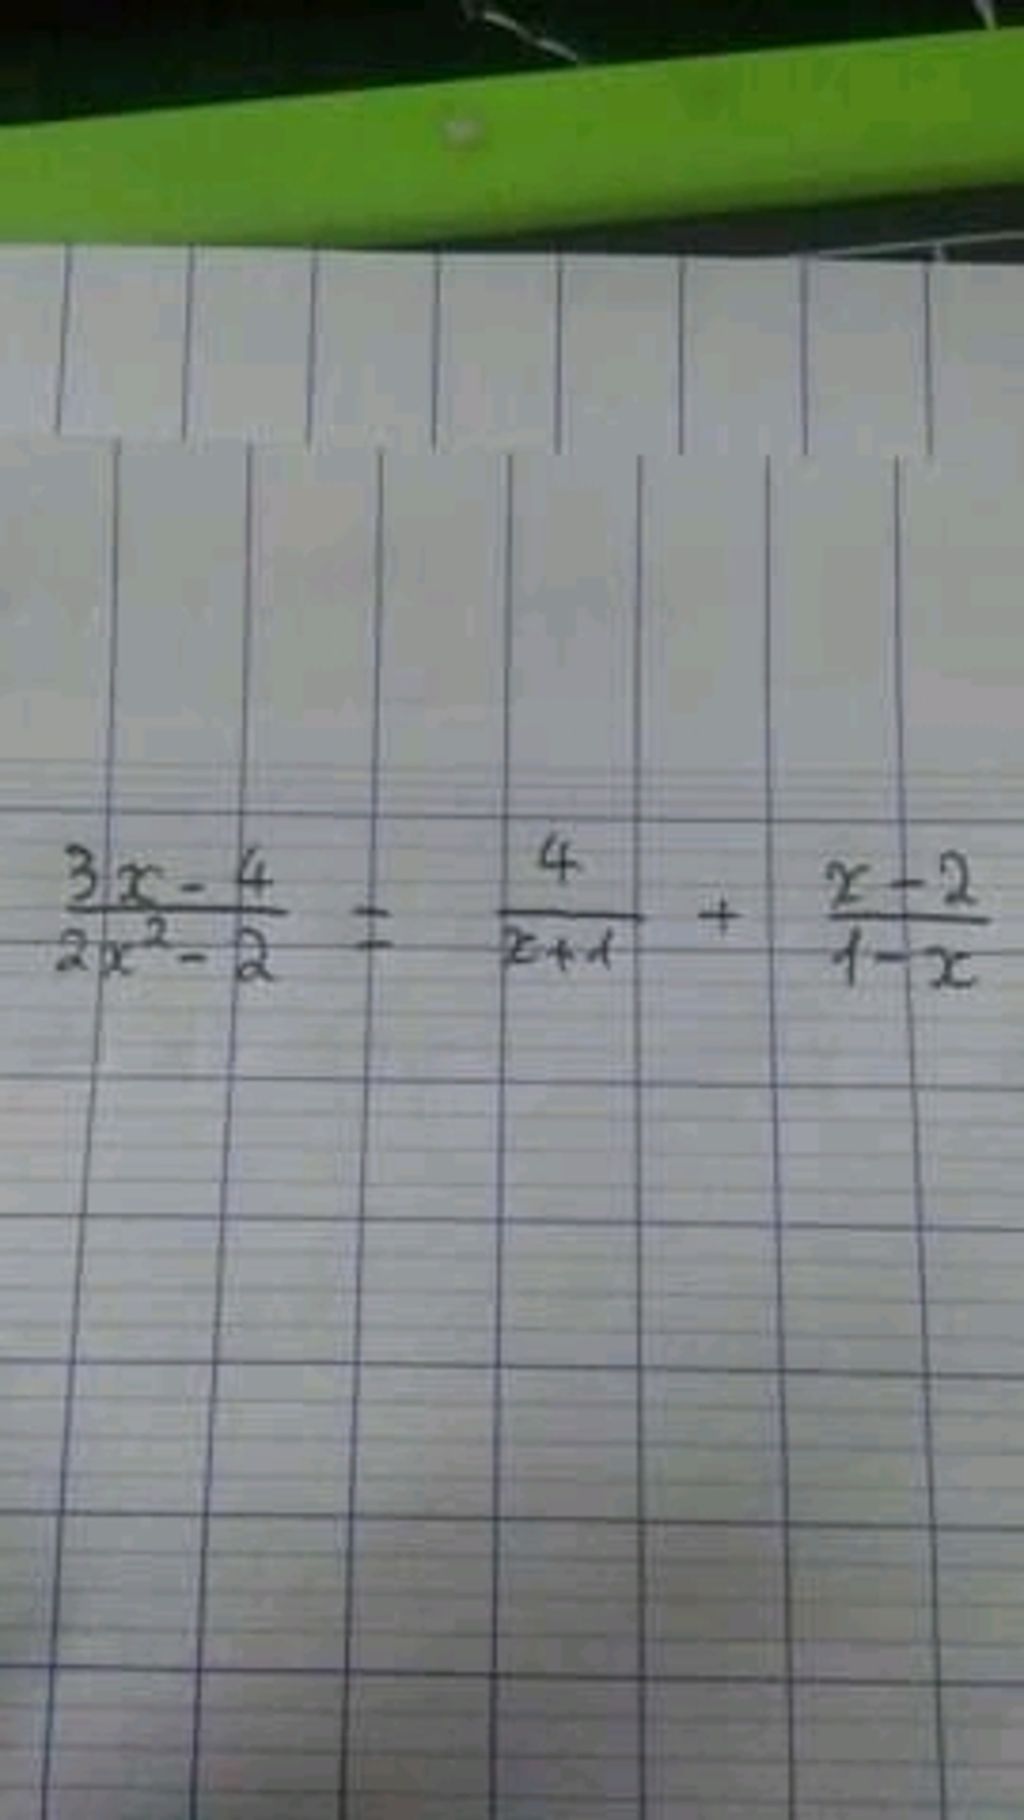 (3x - 4)/(2x² - 2) = 4/(x+1) + (x - 2)/(1 - x)